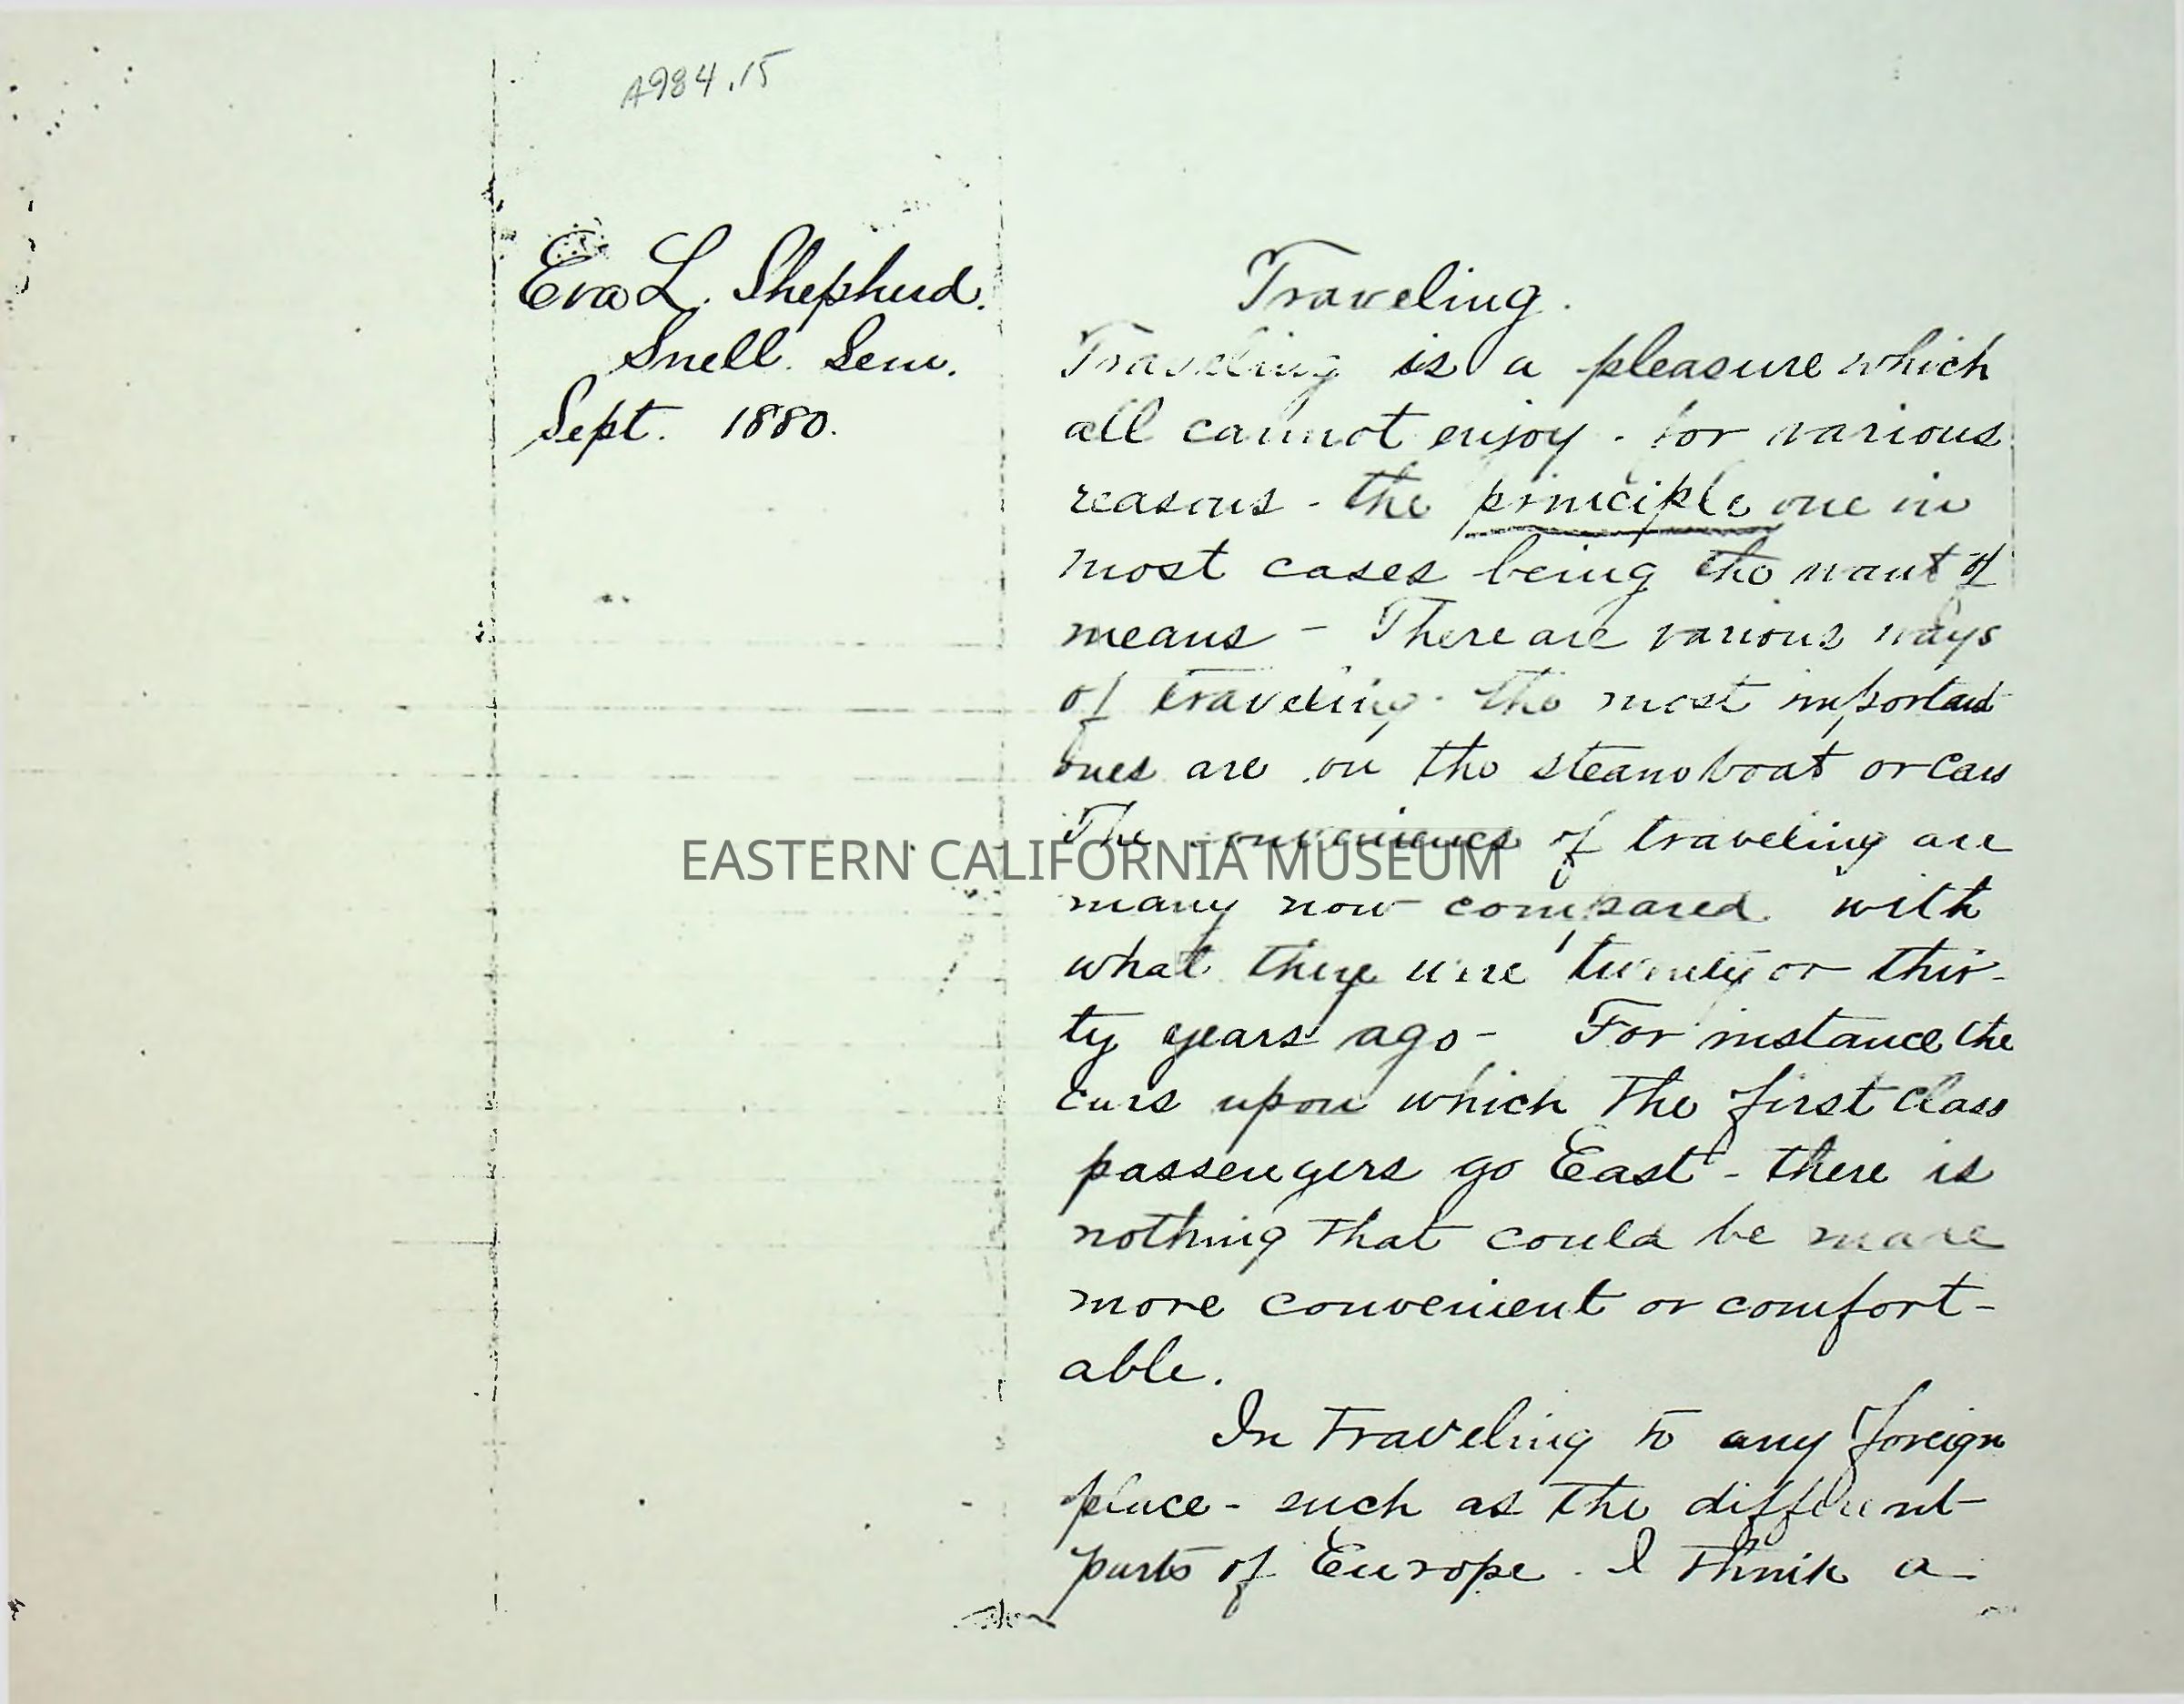 A984.15
Eva L. Shepherd.
Snell. Sem.
Sept. 1880.
Traveling.
Traveling is a pleasure which
all cannot enjoy - for various
reasons - the principle one in
most cases being the want of
means - There are various ways
of traveling - the most important
ones are on the steamboat or cars
The conveniences of traveling are
EASTERN CALIFORNIA MUSEUM
many now compared with
what there were twenty or thir-
ty years ago - For instance the
cars upon which the first class
passengers go East - there is
nothing that could be made
more convenient or comfort-
able.
In traveling to any foreign
place - such as the different
parts of Europe - I think a